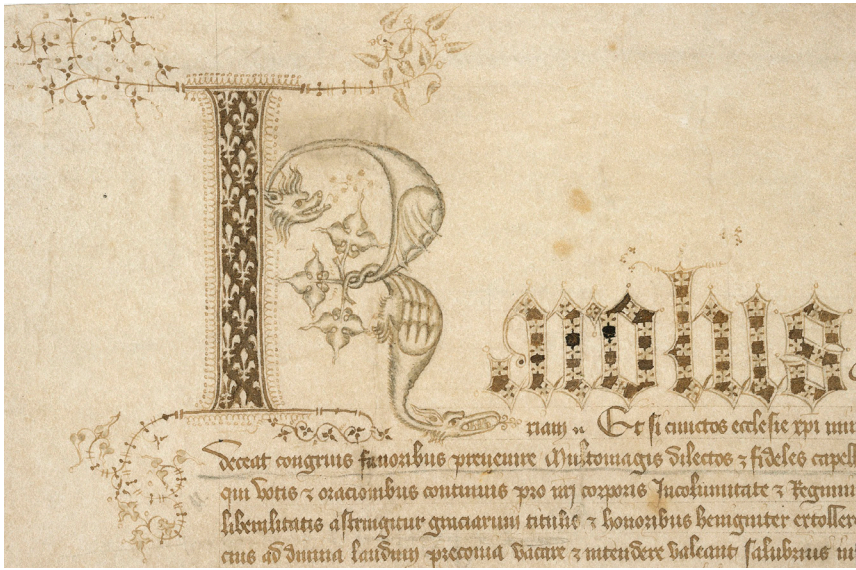 R mahus
riam .. Et si cunctos ecclesie xpi mi
deceat congruis fauoribus preuenire Multomagis dilectos ⁊ fideles capell
qui votis ⁊ oracionibus continuis pro nri corporis Incolumitate ⁊ Regimi
liberalitatis astringitur graciarum titulis ⁊ honoribus benigniter extoller
cius ad diuina laudum preconia vacare ⁊ intendere valeant salubrius